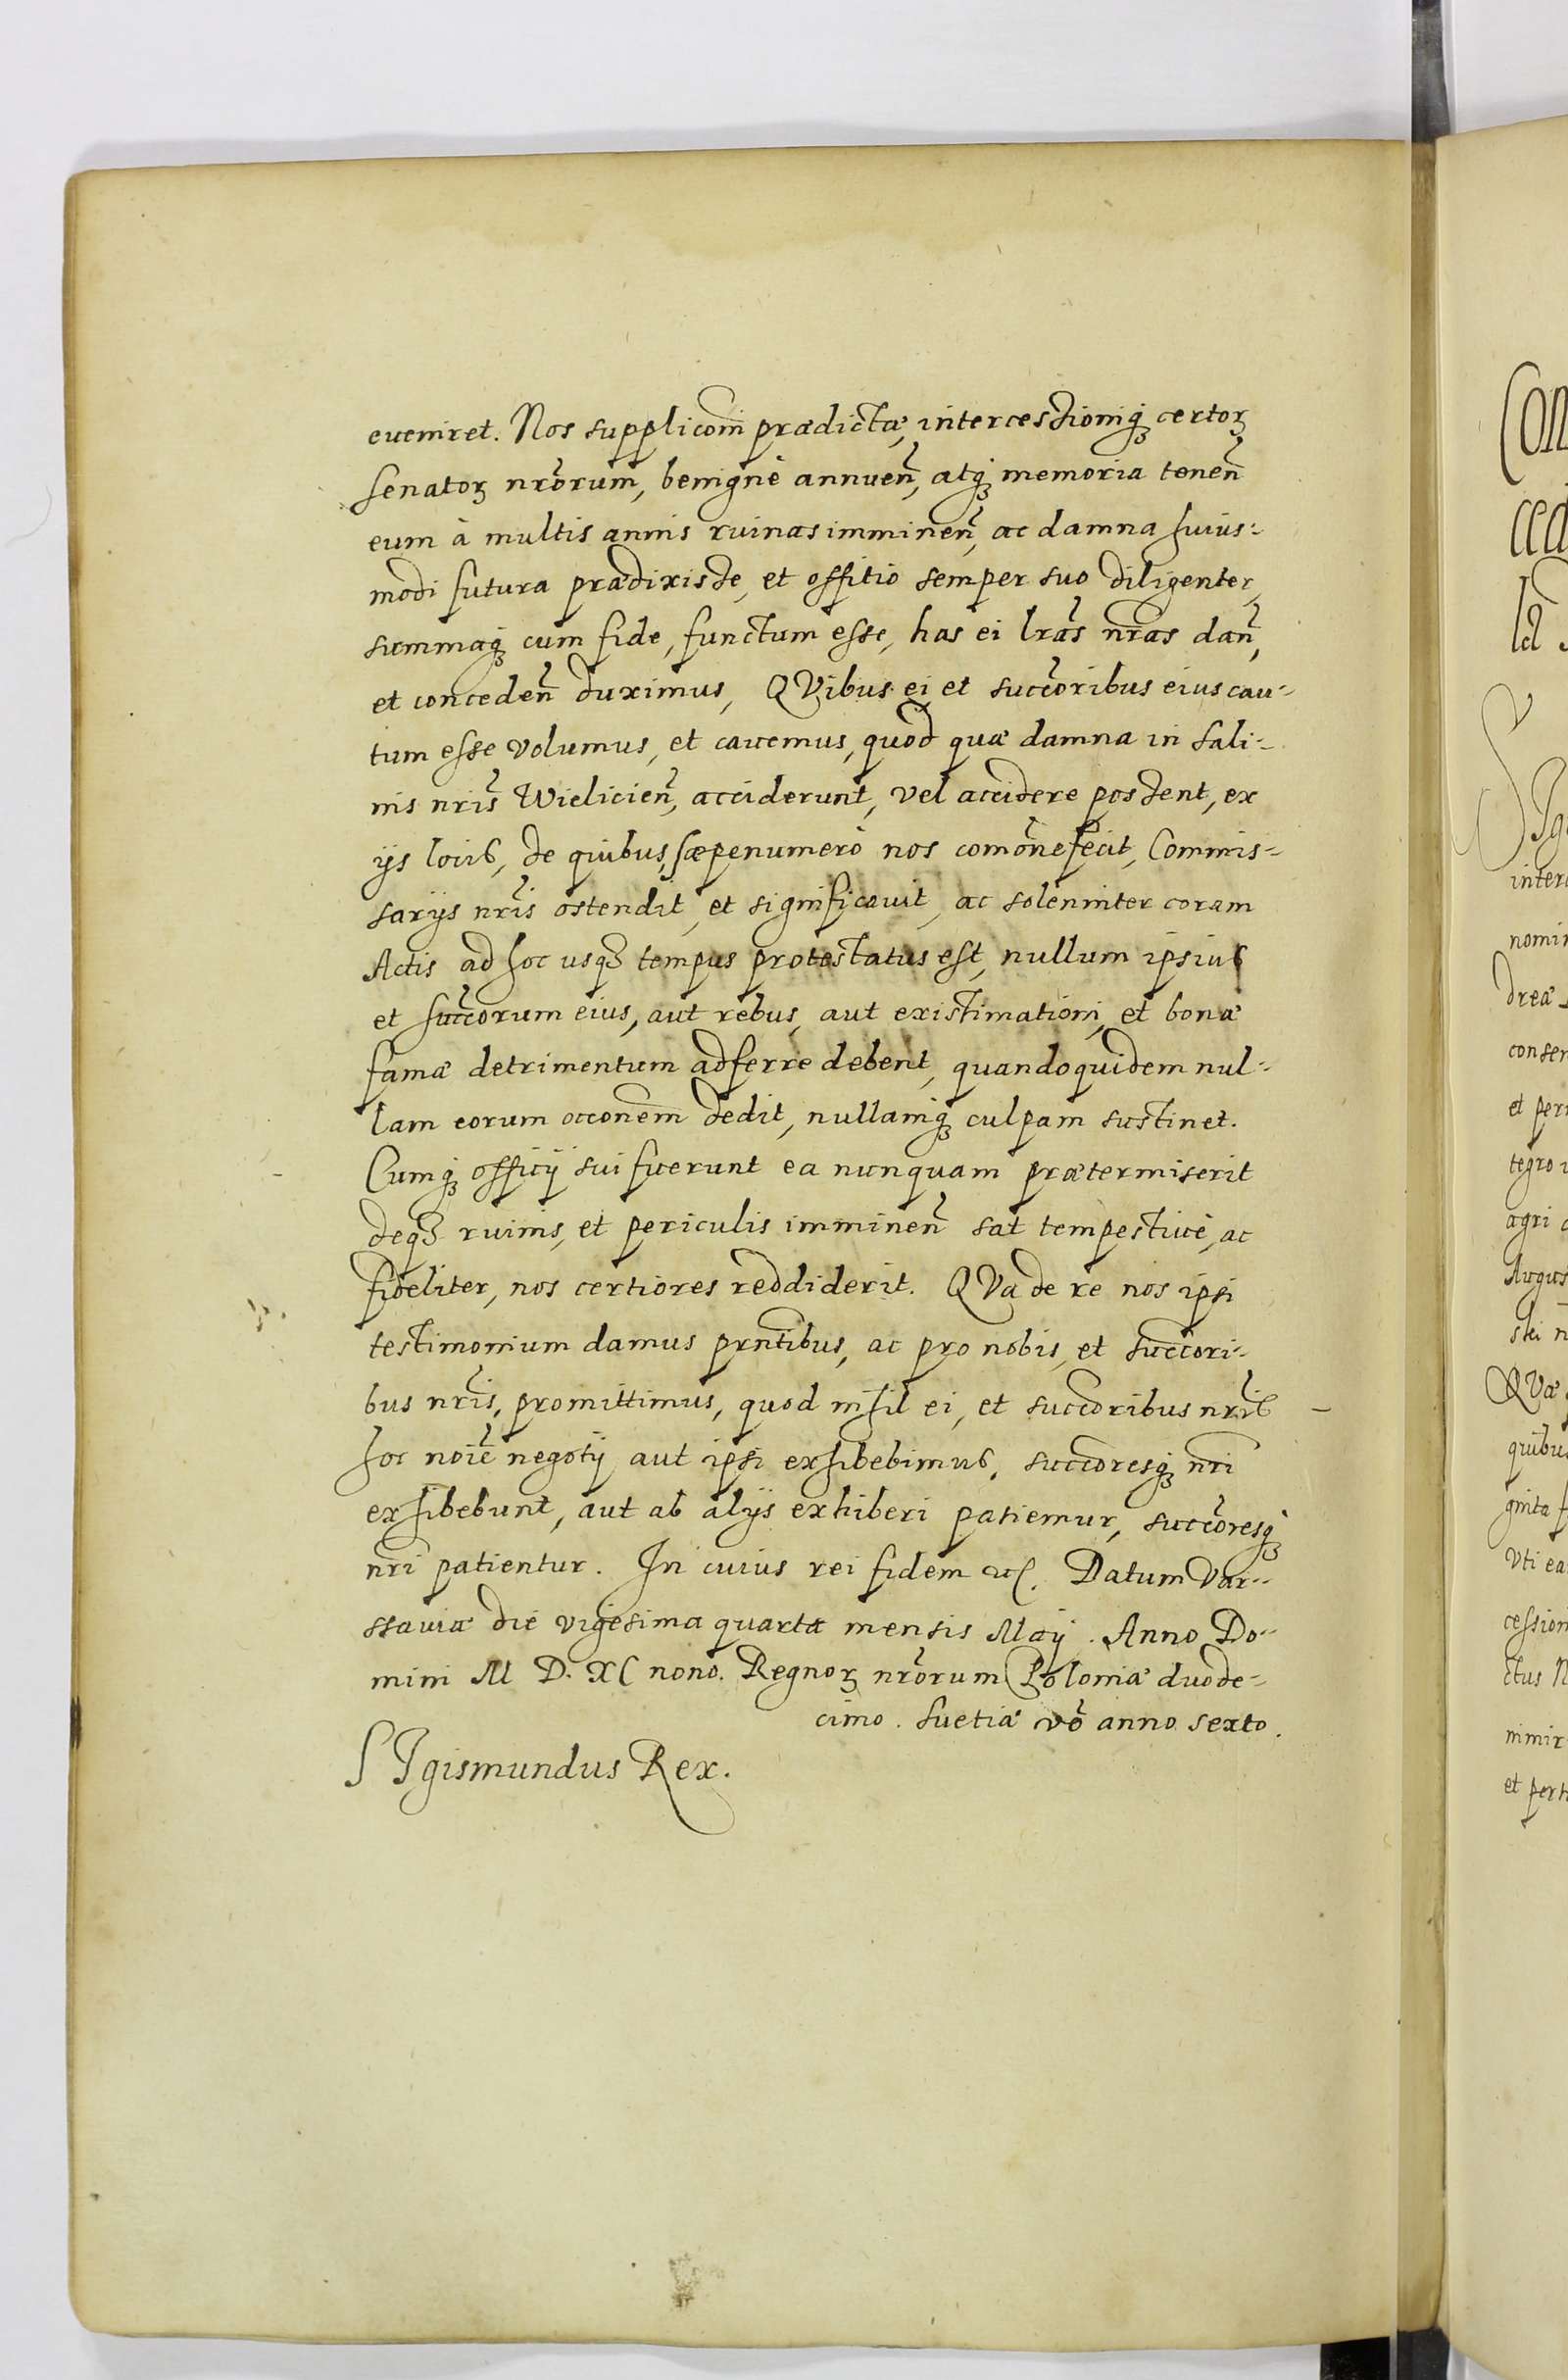 eveniret. Nos supplicom̃ prædictæ, intercessioniqꝫ certoꝝ
senatoꝝ nr̃orum, benignè annueñ, atqꝫ memoria teneñ
eum à multis annis ruinas immineñ, ac damna huius-
modi futura prædixisse, et offitio semper suo diligenter,
summaqꝫ cum fide, functum esse, has ei lr̃as nr̃as dañ,
et concedeñ duximus, QVibus ei et succ̃oribus eius cau-
tum esse volumus, et cavemus, quod quæ damna in Sali-
nis nr̃is Wielicieñ, acciderunt, vel accidere possent, ex
ijs locis, de quibus, sæpenumerò nos com̃onefecit, Commis-
sarijs nr̃is ostendit, et significavit, ac solenniter coram
Actis ad hoc usqꝫ tempus protestatus est, nullum ipsius
et succ̃orum eius, aut rebus, aut existimationi, et bonæ
famæ detrimentum adferre debent, quandoquidem nul-
lam eorum occ̃onem dedit, nullamqꝫ culpam sustinet.
Cumqꝫ officij sui fuerunt ea nunquam prætermiserit
deqꝫ ruinis, et periculis immineñ sat tempestivè, ac
fideliter, nos certiores reddiderit. QVa de re nos ipsi
testimonium damus pr̃ntibus, ac pro nobis, et succ̃ori-
bus nr̃is, promittimus, quod nihil ei, et succ̃oribus nr̃is
hoc noi͠e negotij aut ipsi exhibebimus, succ̃oresqꝫ nr̃i
exhibebunt, aut ab alijs exhiberi patiemur, succ̃oresqꝫ
nr̃i patientur. In cuius rei fidem etc. Datum Var-
ssaviæ die vigesima quarta mensis Maij. Anno Do-
mini M D. XC nono. Regnoꝝ nr̃orum Poloniæ duode-
cimo. Suetiæ võ anno sexto.
SIgismundus Rex.